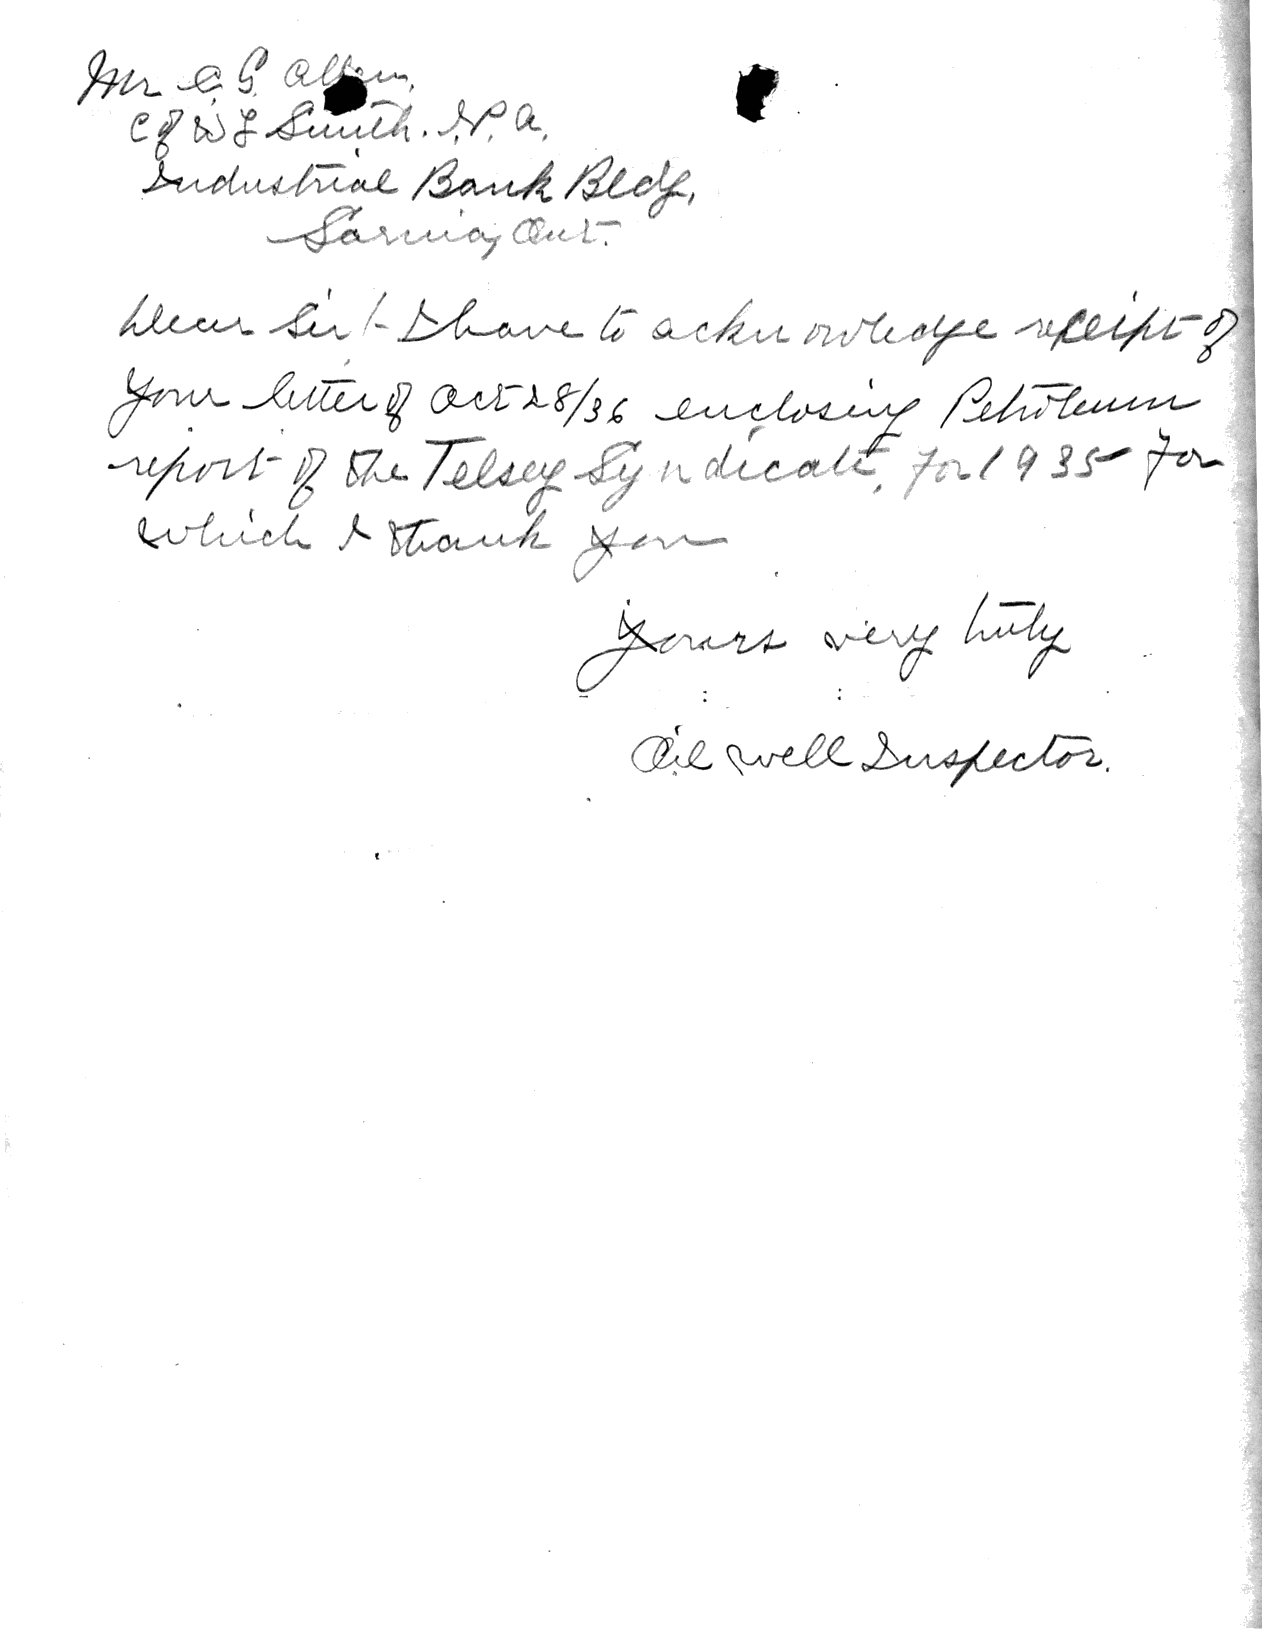 Mr C. G.
C of W L Smith. I. P. A.
Industrial Bank Bldg,
Sarnia, Ont.
Dear Sir!- I have to acknowledge receipt of
your letter of Oct 28/36 enclosing Petroleum
report of the Telsey Syndicate, for 1935 for
which I thank you
Yours very truly
Oil well Inspector.